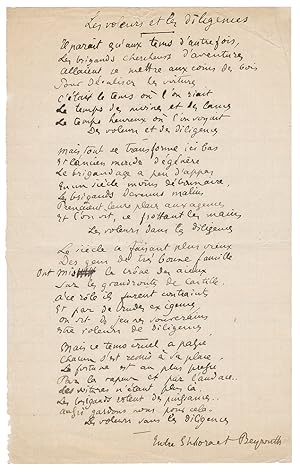 Les voleurs et les diligences
Il paraît qu'aux temps d'autrefois,
Les brigands chercheurs d'aventures
Allaient se mettre aux coins des bois
Pour dévaliser les voitures
C'était le temps où l'on riait
Le temps des
Le temps heureux où l'on voyait
Des voleurs et des diligences
Mais tout se transforme ici bas
Et l'ancien monde dégénère
Le brigandage a peu d'appas
En un siècle moins débonnaire,
Les brigands devenus malins
Prennent leurs places aux agences
Et l'on vit, se frottant les mains
Les voleurs dans les diligences
Le siècle se faisant plus vieux
Des gens de très bonne famille
Ont mis le crâne des aïeux
Sur les grand'routes de Castille.
A ce rôle ils furent contraints
Et par de rudes exigences
On vit de jeunes souverains
Etre voleurs de diligences
Mais ce temps cruel a passé
Chacun s'est remis à sa place
La fortune est au plus pressé
Par la vapeur et par l'audace..
Les voitures n'étant plus là
Les brigands volent des puissances..
aussi gardons nous pour cela
Les voleurs dans les diligences
Entre St